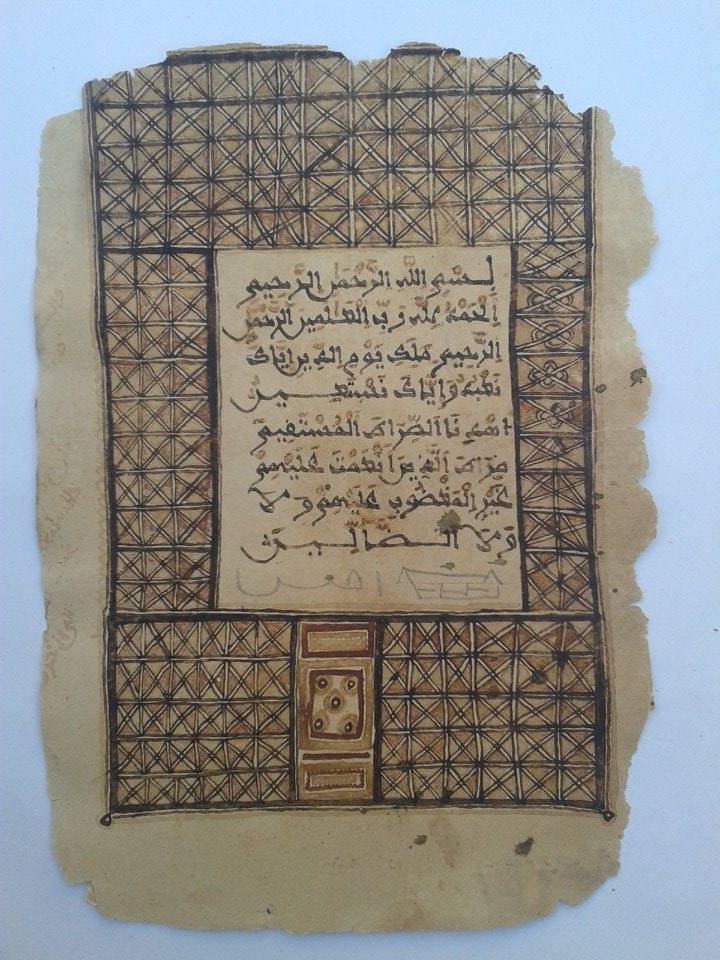 بسم الله الرحمن الرحيم
الحمد لله رب العلمين الرحمن
الرحيم ملك يوم الدين اياك
نعبد واياك نستعين
اهدنا الصراط المستقيم
صراط الذين انعمت عليهم
غير المغضوب عليهم ولا
ولا الضالين